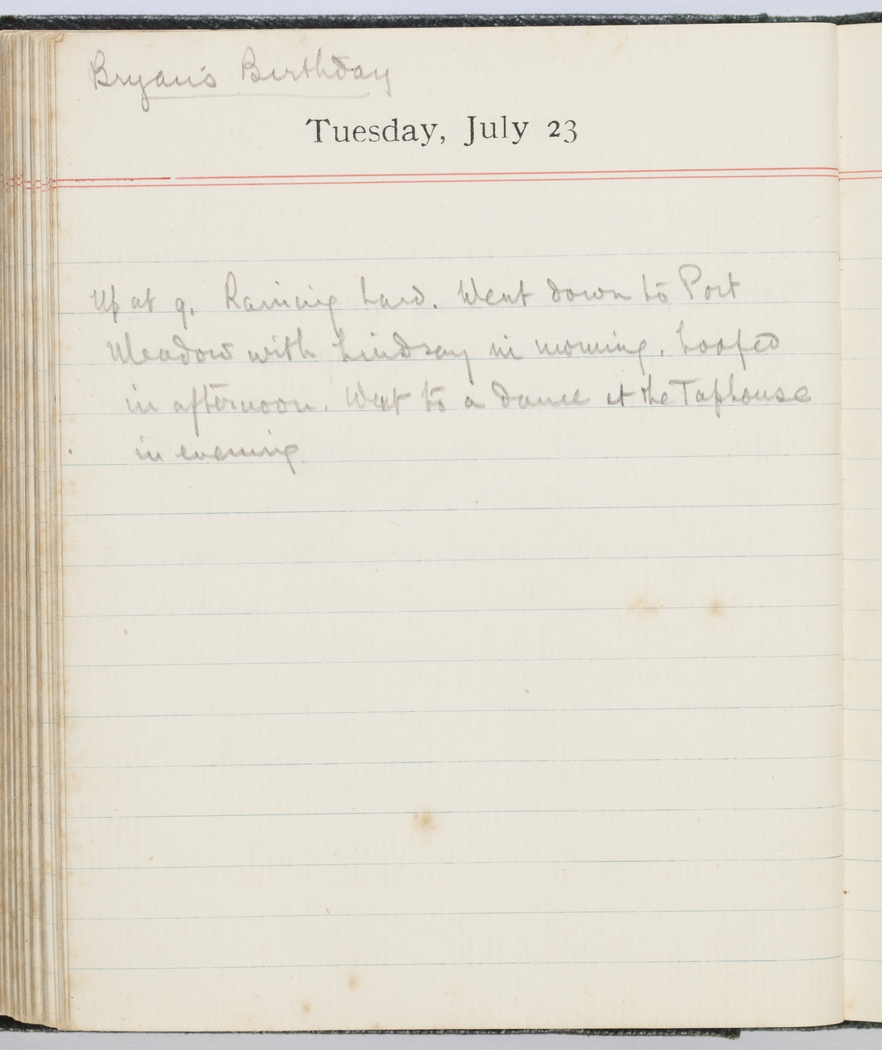 Bryan's Birthday
Tuesday, July 23
Up at 9. Raining hard. Went down to Port
Meadow with Lindsay in morning. Loafed
in afternoon. Went to a dance at the Taphouse
in evening